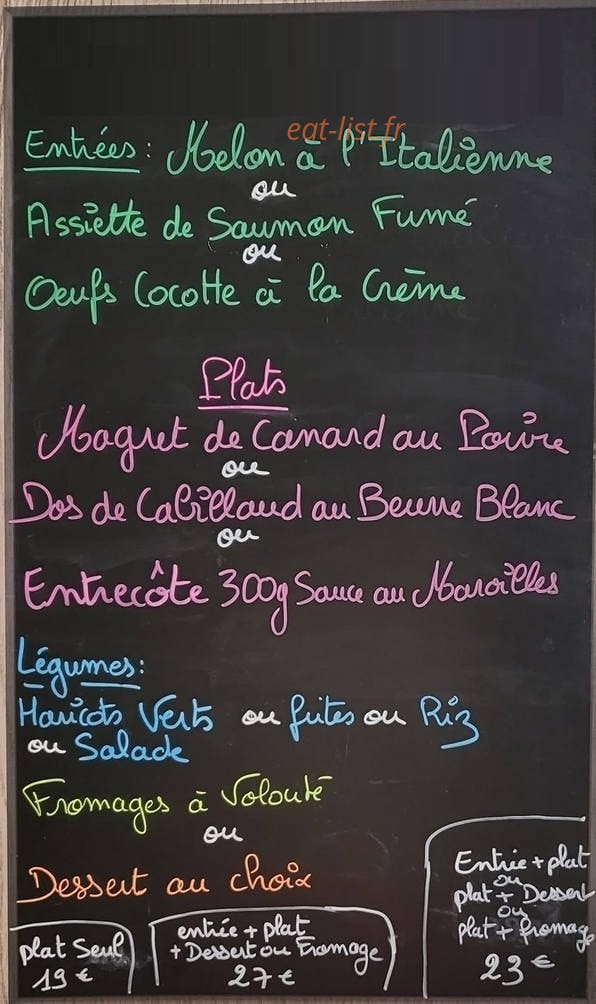 eat-list.fr
Entrées: Melon à l'Italienne
ou
Assiette de Saumon Fumé
ou
Oeufs Cocotte à la Crème
Plats
Magret de Canard au Poivre
ou
Dos de Cabillaud au Beurre Blanc
ou
Entrecôte 300g Sauce au Maroilles
Légumes:
Haricots Verts ou frites ou Riz
ou Salade
Fromages à Volouté
ou
Dessert au choix
plat Seul
19 €
entrée + plat
+ Dessert ou Fromage
27 €
Entrée + plat
ou
plat + Dessert
ou
plat + fromage
23 €